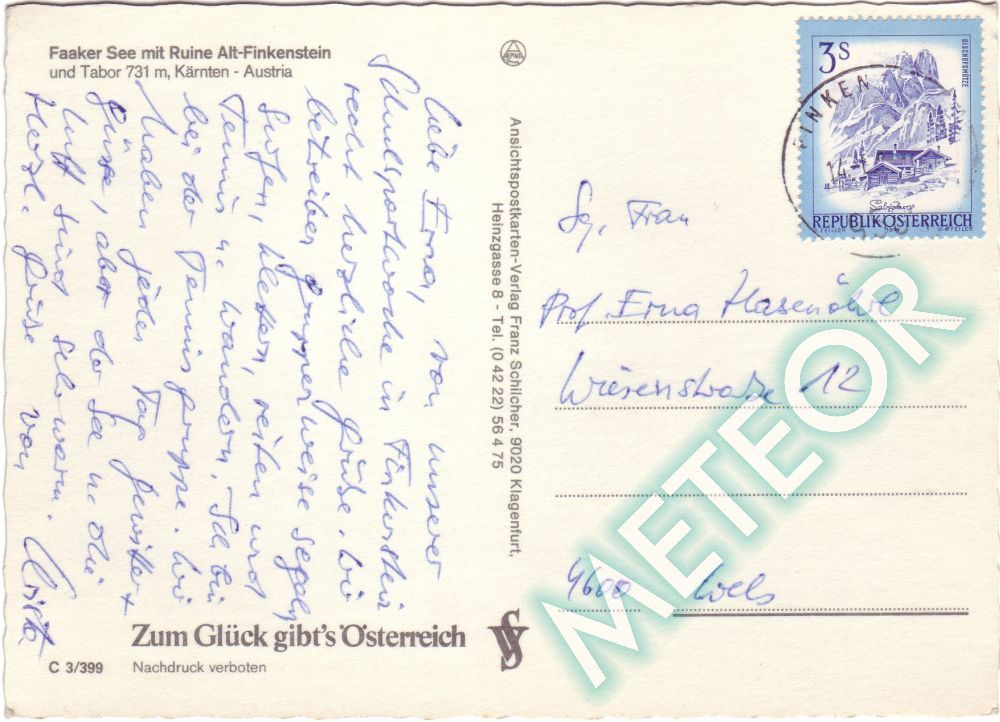 Faaker See mit Ruine Alt-Finkenstein
und Tabor 731 m, Kärnten - Austria
Liebe Erna, von unserer
Schulsportwoche in Finkenstein
recht herzliche Grüße. Wir
betreiben gruppenweise segeln,
surfen, klettern, reiten und
Tennis u. wandern. Ich bin
bei der Tennisgruppe. Wir
haben jeden Tag Gewitter
güsse, aber der See u. die
Luft sind sehr warm.
Herzl. Grüße von
Zum Glück gibt's Österreich
C 3/399
Nachdruck verboten
Ansichtspostkarten-Verlag Franz Schilcher, 9020 Klagenfurt,
Heinzgasse 8 - Tel. (0 42 22) 56 4 75
3S
BISCHOFSMÜTZE
Salzburg
REPUBLIK ÖSTERREICH
FINKEN
12.
Sg. Frau
Prof. Erna Hasenöhrl
Wiesenstraße 12
4600 Wels
METEOR